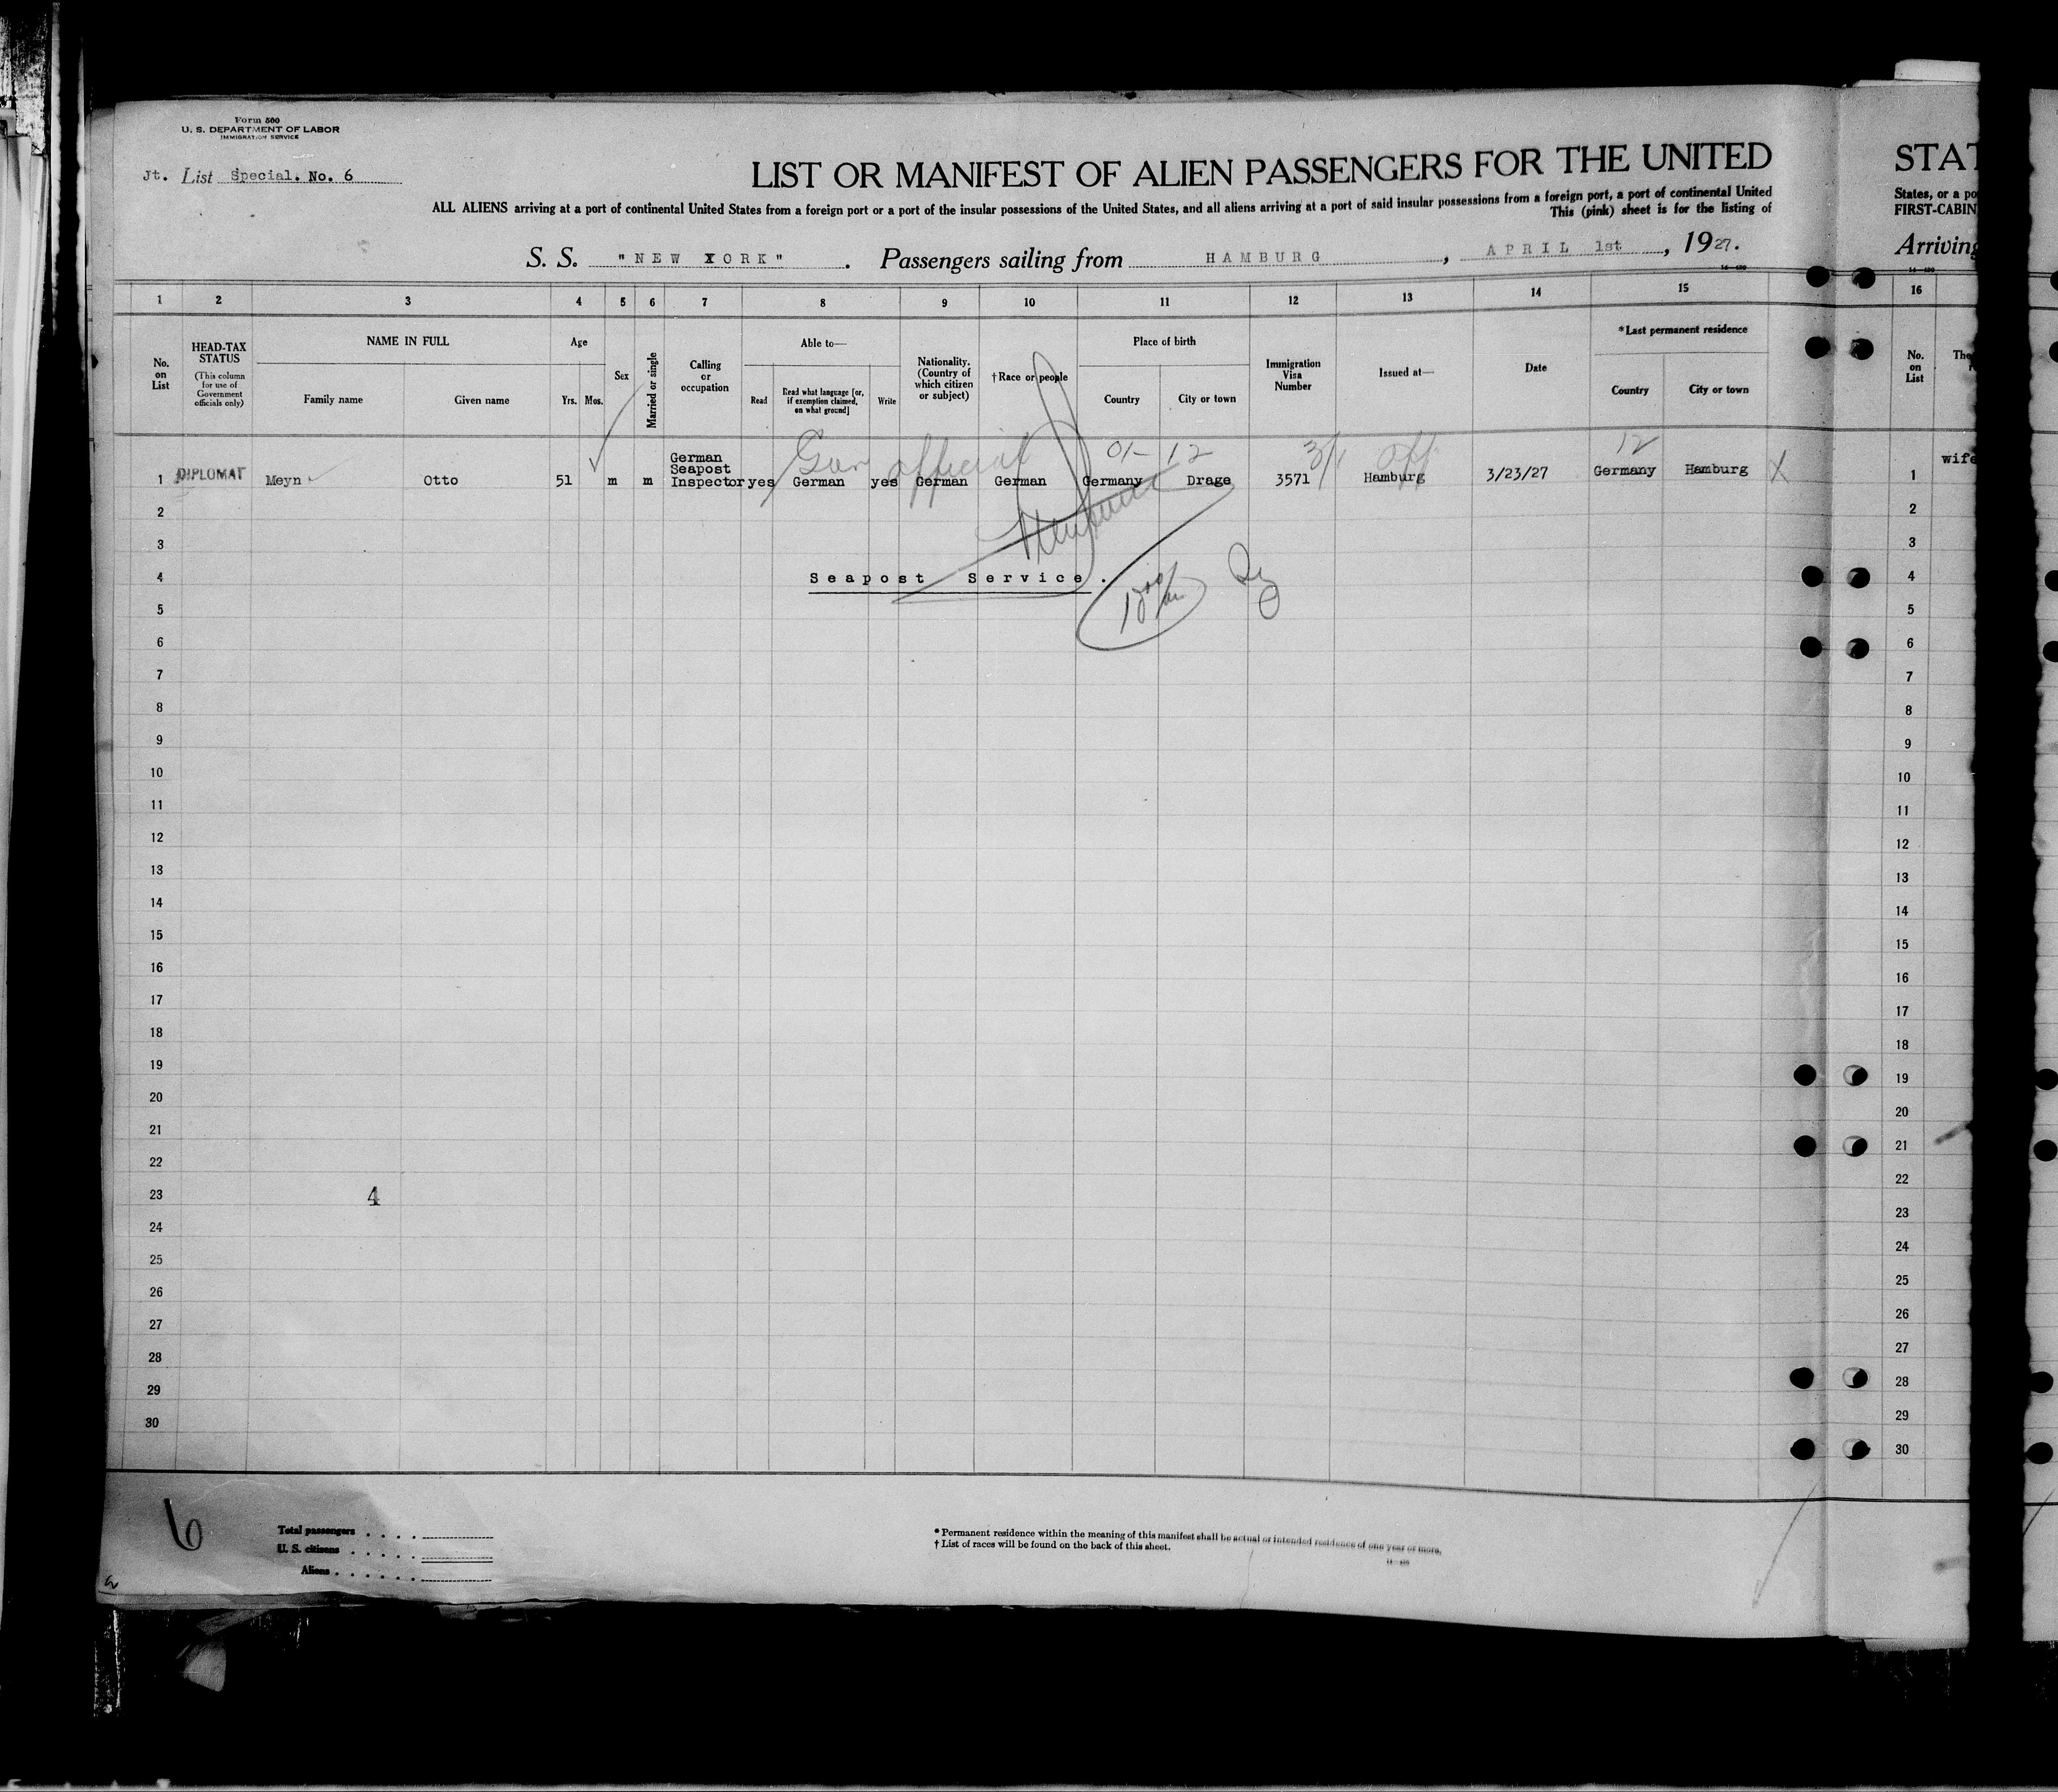 Form 500
U. S. DEPARTMENT OF LABOR
IMMIGRATION SERVICE
Jt. List Special. No. 6
LIST OR MANIFEST OF ALIEN PASSENGERS FOR THE UNITED
ALL ALIENS arriving at a port of continental United States from a foreign port or a port of the insular possessions of the United States, and all aliens arriving at a port of said insular possessions from a foreign port, a port of continental United
This (pink) sheet is for the listing of
S. S. "NEW YORK". Passengers sailing from HAMBURG, APRIL 1st, 1927.
1 2 3 4 5 6 7 8 9 10 11 12 13 14 15
No. on List
HEAD-TAX STATUS
(This column for use of Government officials only)
NAME IN FULL
Family name
Given name
Age
Yrs. Mos.
Sex
Married or single
Calling or occupation
Able to—
Read
Read what language [or, if exemption claimed, on what ground]
Write
Nationality. (Country of which citizen or subject)
†Race or people
Place of birth
Country
City or town
Immigration Visa Number
Issued at—
Date
*Last permanent residence
Country
City or town
official 01- 12 3/1 12
1 DIPLOMAT Meyn Otto 51 m m German Seapost Inspector yes German yes German German Germany Drage 3571 Hamburg 3/23/27 Germany Hamburg X
2
3
4 Seapost Service.
5
6
7
8
9
10
11
12
13
14
15
16
17
18
19
20
21
22
23 4
24
25
26
27
28
29
30
6
Total passengers
U. S. citizens
Aliens
* Permanent residence within the meaning of this manifest shall be actual or intended residence of one year or more.
† List of races will be found on the back of this sheet.
STAT
States, or a po
FIRST-CABIN
Arriving
16
No. on List
The
1 wife
2
3
4
5
6
7
8
9
10
11
12
13
14
15
16
17
18
19
20
21
22
23
24
25
26
27
28
29
30